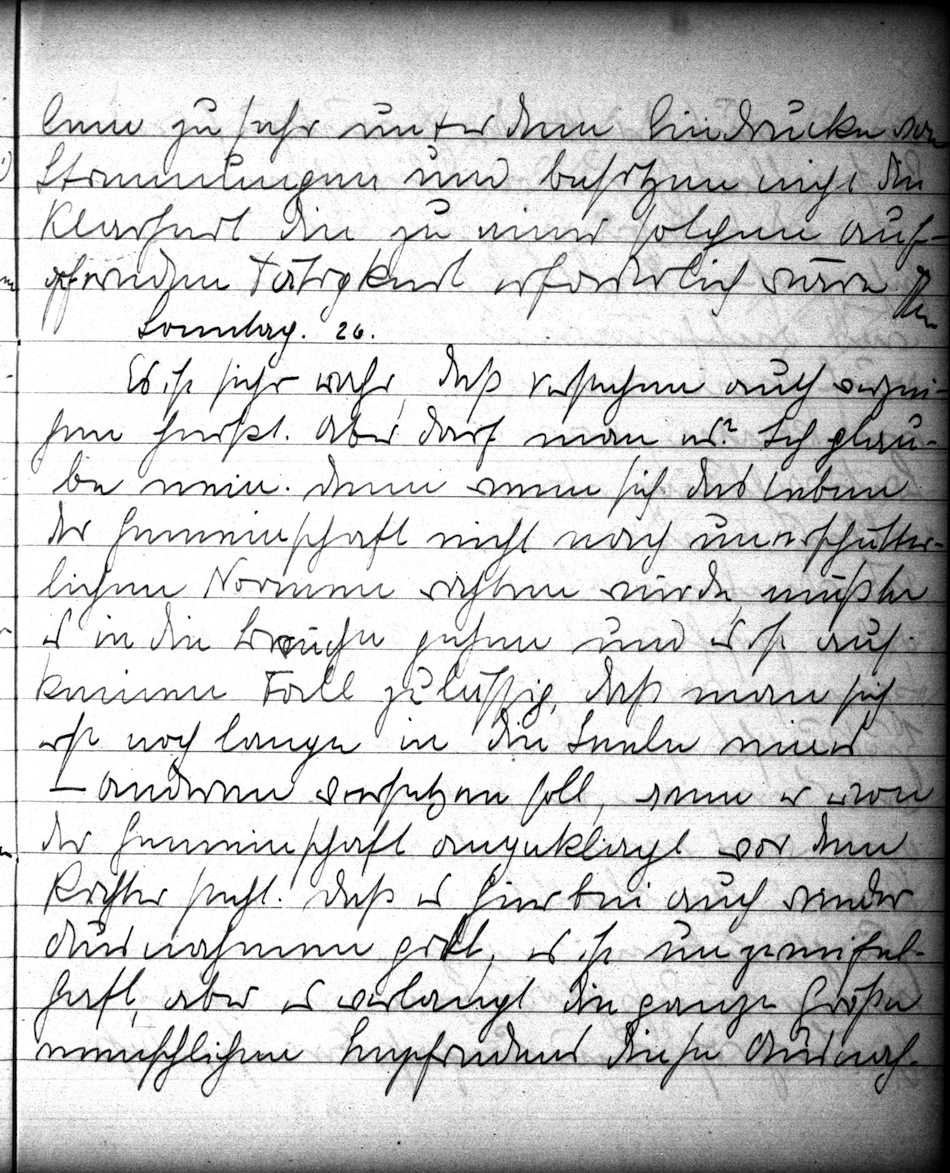 lenn zu sehr unter dem Eindrucke von
Stimmungen und besitzen nicht die
Klarheit die zu einer solchen auf-
opfernden Tätigkeit erforderlich wäre
Sonntag. 26.
Es ist sehr wahr, daß verstehen auch verzei-
hen heißt. Aber darf man es? Ich glau-
be nein. Denn wenn sich das Leben
der Gemeinschaft nicht nach unerschütter-
lichen Normen richten würde, müßte
es in die Brüche gehen und es ist auf
keinen Fall zulässig, daß man sich
erst noch lange in die Seele eines
Anderen versetzen soll, wenn er von
der Gemeinschaft angeklagt vor dem
Richter steht. Daß es hierbei auch wieder
Ausnahmen gibt, es ist unzweifel-
haft, aber es verlangt die ganze Größe
menschlichen Empfindens diese Ausnah-